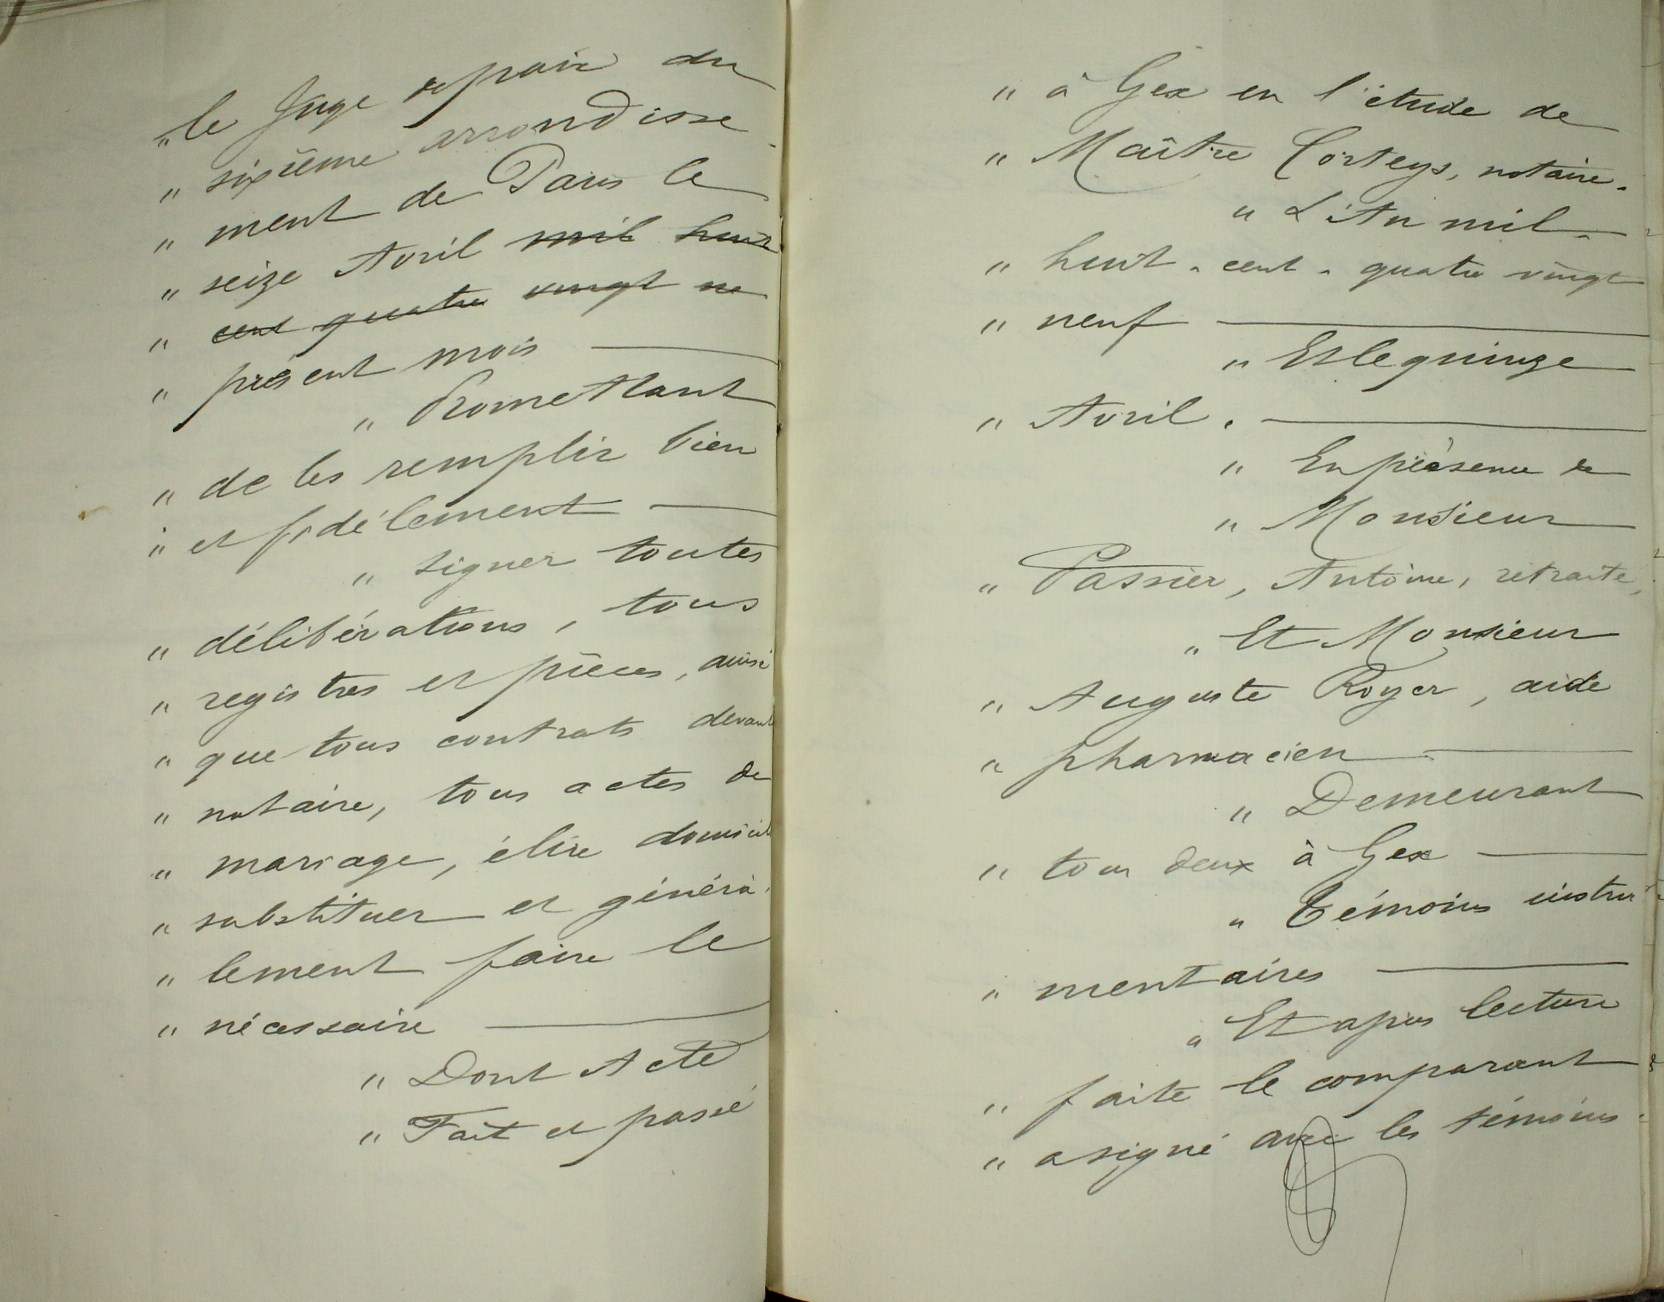 " le Juge de paix du
" sixième arrondisse-
" ment de Paris le
" seize Avril mil huit
" cent quatre vingt ne
" présent mois
" Promettant
" de les remplir bien
" et fidélement
" signer toutes
" délibérations, tous
" registres et pièces, ainsi
" que tous contrats devant
" notaire, tous actes de
" mariage, élire domicile
" substituer et généra-
" lement faire le
" nécessaire
" Dont Acte
" Fait et passé
" à Gex en l'étude de
" Maître Corteys, notaire.
" L'An mil-
" huit-cent-quatre vingt
" neuf
" Et le quinze
" Avril.
" En présence de
" Monsieur
" Passier, Antoine, retraité,
" Et Monsieur
" Auguste Royer, aide
" pharmacien
" Demeurant
" tous deux à Gex
" Témoins instru-
" mentaires
" Et après lecture
" faite le comparant
" a signé avec les témoins